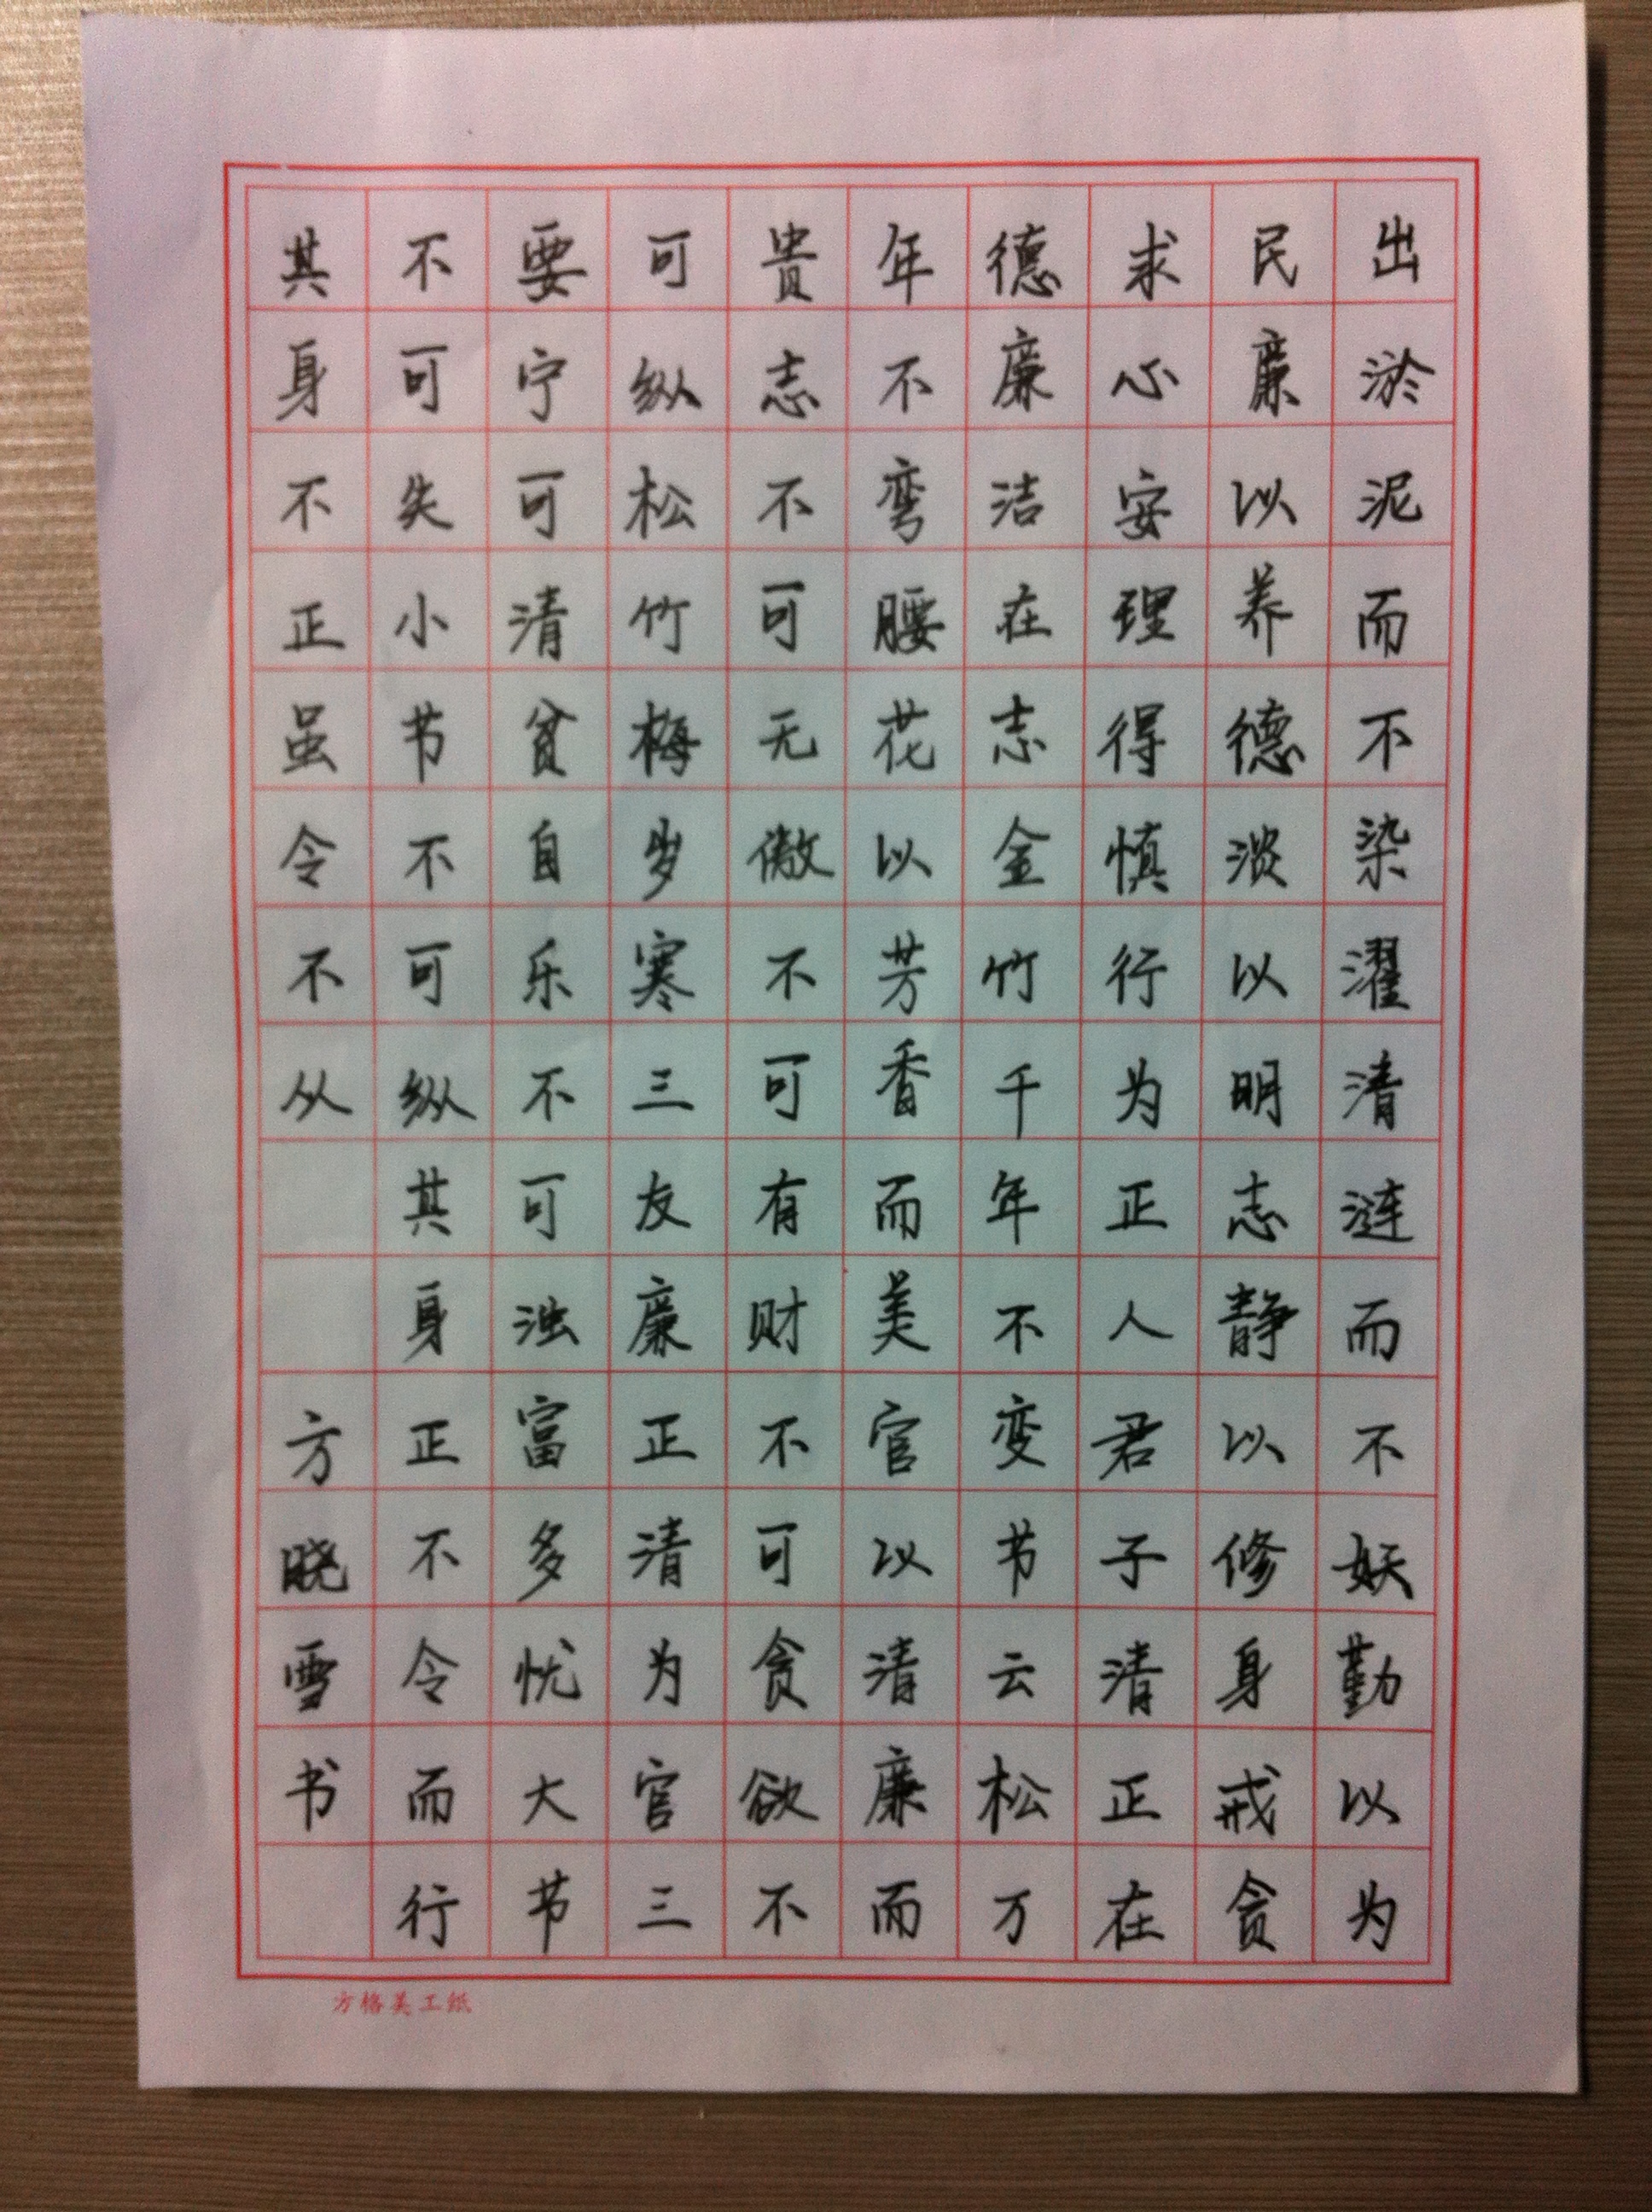 出淤泥而不染濯清涟而不妖勤以为
民廉以养德淡以明志静以修身戒贪
求心安理得慎行为正人君子清正在
德廉洁在志金竹千年不变节云松万
年不弯腰花以芳香而美官以清廉而
贵志不可无傲不可有财不可贪欲不
可纵松竹梅岁寒三友廉正清为官三
要宁可清贫自乐不可浊富多忧大节
不可失小节不可纵其身正不令而行
其身不正虽令不从 方晓雪书
方格美工纸